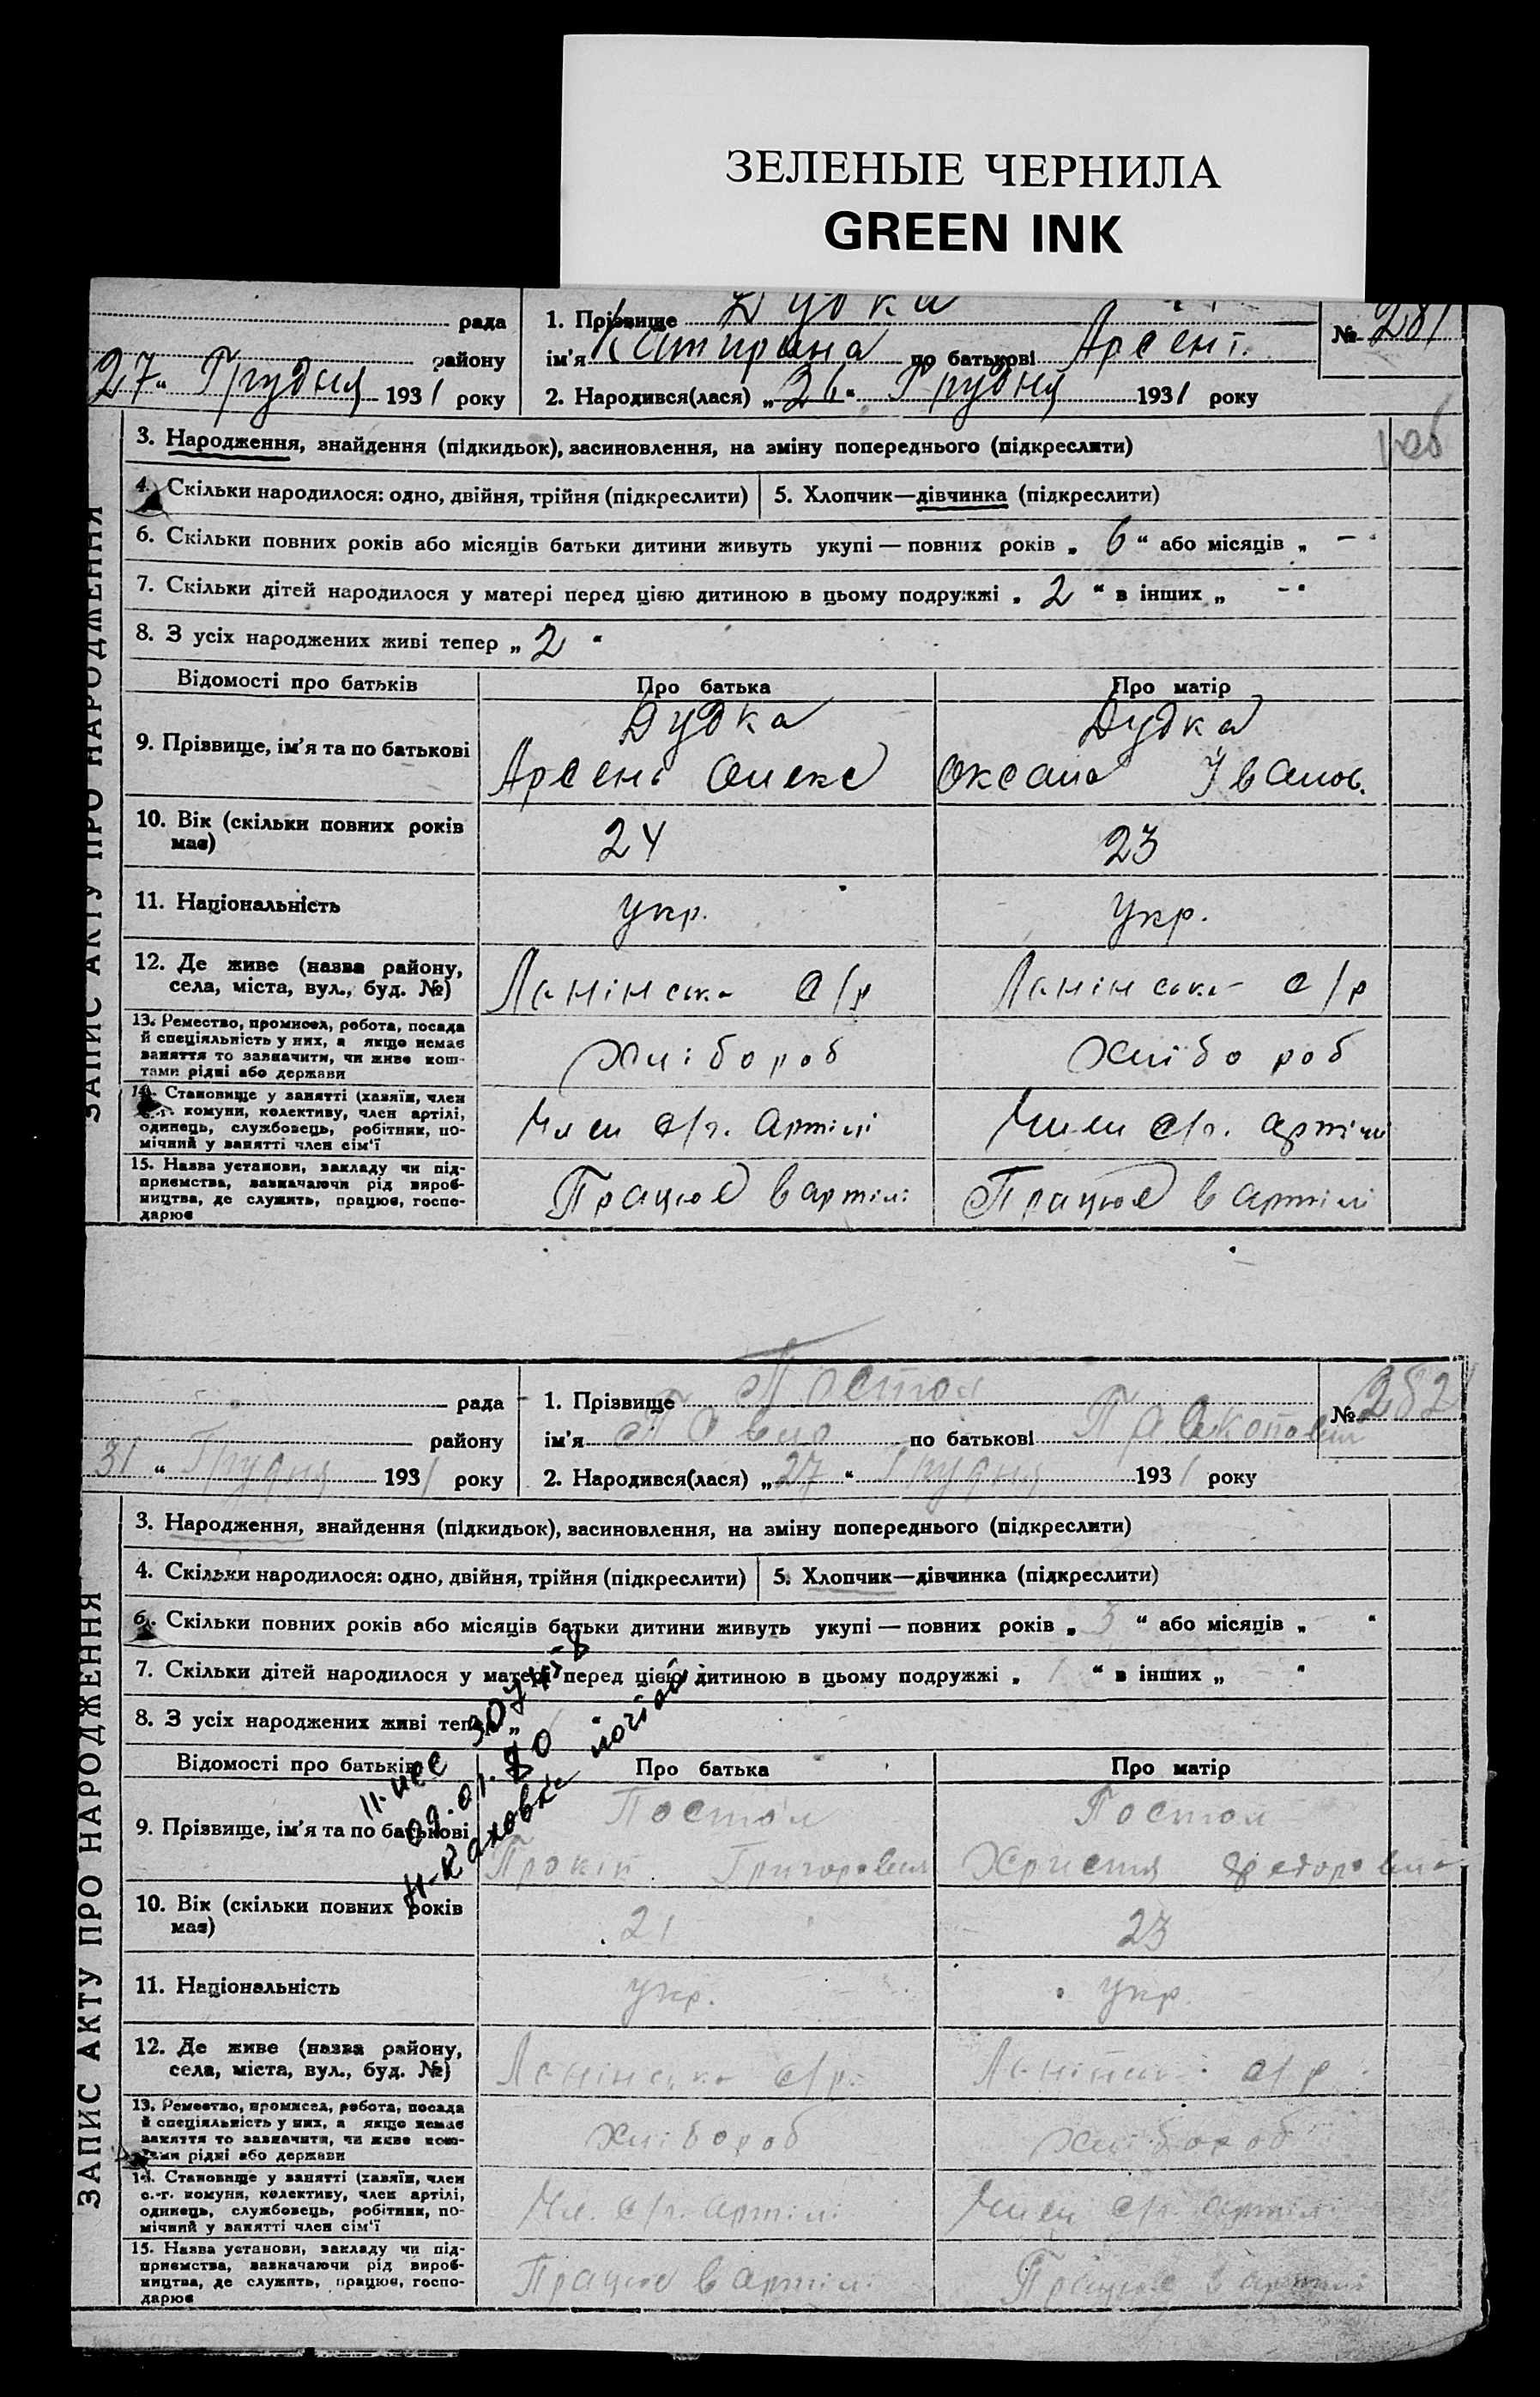 ЗЕЛЕНЫЕ ЧЕРНИЛА
GREEN INK
рада
району
27 " Грудня 1931 року
1. Прізвище Дудка
ім'я Катирина по батькові Арсент.
2. Народився(лася) „ 26 " Грудня 1931 року
№ 281
3. Народження, знайдення (підкидьок), засиновлення, на зміну попереднього (підкреслити)
4. Скільки народилося: одно, двійня, трійня (підкреслити)
5. Хлопчик—дівчинка (підкреслити)
6. Скільки повних років або місяців батьки дитини живуть укупі — повних років „ 6 " або місяців „ - "
7. Скільки дітей народилося у матері перед цією дитиною в цьому подружжі „ 2 " в інших „ - "
8. З усіх народжених живі тепер „ 2 "
ЗАПИС АКТУ ПРО НАРОДЖЕННЯ
Відомості про батьків
Про батька
Про матір
9. Прізвище, ім'я та по батькові
Дудка
Арсень Олекс
Дудка
Оксана Іванов.
10. Вік (скільки повних років має)
24
23
11. Національність
укр.
укр.
12. Де живе (назва району,
села, міста, вул., буд. №)
Ленінська с/р
Ленінська с/р
13. Ремество, промисел, робота, посада
й спеціяльність у них, а якщо немає
заняття то зазначити, чи живе кош-
тами рідні або держави
Хлібороб
Хлібороб
14. Становище у занятті (хазяїн, член
с.-г. комуни, колективу, член артілі,
одинець, службовець, робітник, по-
мічний у занятті член сім'ї
Член с/г. артілі
Член с/г. артілі
15. Назва установи, закладу чи під-
приємства, зазначаючи рід вироб-
ництва, де служить, працює, госпо-
дарює
Працює в артілі
Працює в артілі
рада
району
31 " Грудня 1931 року
1. Прізвище Постол
ім'я Павло по батькові Пракопович
2. Народився(лася) „ 27 " Грудня 1931 року
№ 282
3. Народження, знайдення (підкидьок), засиновлення, на зміну попереднього (підкреслити)
4. Скільки народилося: одно, двійня, трійня (підкреслити)
5. Хлопчик—дівчинка (підкреслити)
6. Скільки повних років або місяців батьки дитини живуть укупі — повних років „ 3 " або місяців „ - "
7. Скільки дітей народилося у матері перед цією дитиною в цьому подружжі „ 1 " в інших „ - "
8. З усіх народжених живі тепер „ "
ЗАПИС АКТУ ПРО НАРОДЖЕННЯ
Відомості про батьків
Про батька
Про матір
09.01.80
9. Прізвище, ім'я та по батькові
Постол
Прокіп Григорович
Постол
Христя Федоровна
10. Вік (скільки повних років має)
21
23
11. Національність
укр.
укр.
12. Де живе (назва району,
села, міста, вул., буд. №)
Ленінська с/р.
Ленінська с/р
13. Ремество, промисел, робота, посада
й спеціяльність у них, а якщо немає
заняття то зазначити, чи живе кош-
тами рідні або держави
Хлібороб
Хлібороб
14. Становище у занятті (хазяїн, член
с.-г. комуни, колективу, член артілі,
одинець, службовець, робітник, по-
мічний у занятті член сім'ї
Чл. с/г. артілі
Член с/г. артілі
15. Назва установи, закладу чи під-
приємства, зазначаючи рід вироб-
ництва, де служить, працює, госпо-
дарює
Працює в артілі
Працює в артілі